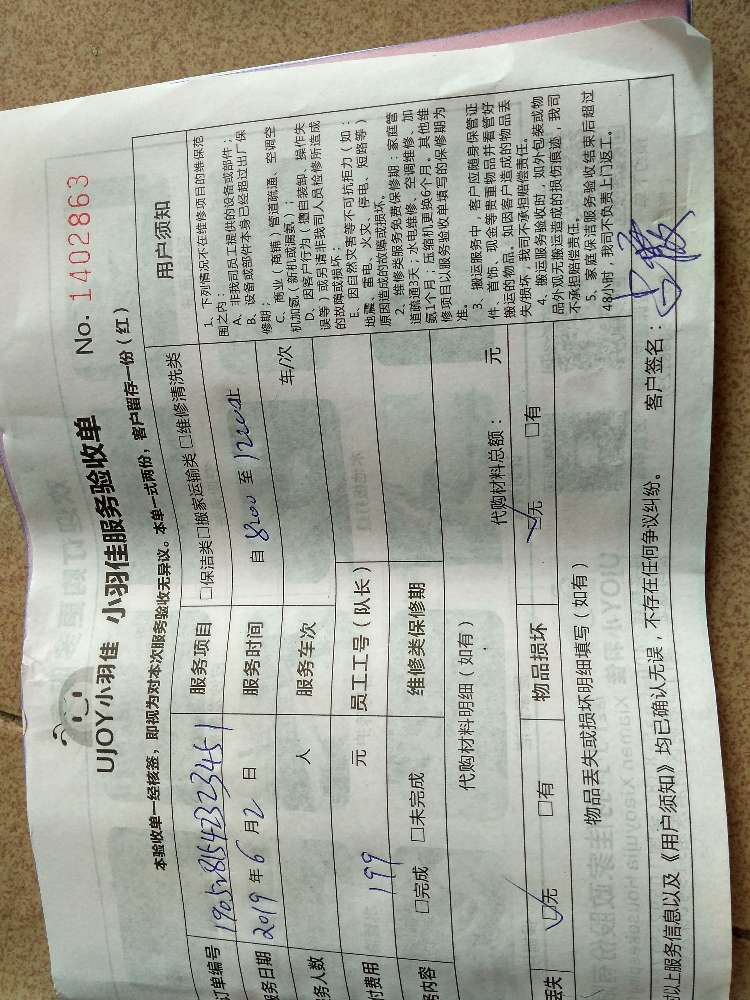 No. 1402863
UJOY小羽佳 小羽佳服务验收单
本验收单一经核签，即视为对本次服务验收无异议。本单一式两份，客户留存一份（红）
订单编号 1905281542323451 服务项目 □保洁类□搬家运输类□维修清洗类
服务日期 2019年6月2日 服务时间 自 8:00 至 12:00止
务人数 人 服务车次 车/次
付费用 199 元 员工工号（队长）
务内容 □完成 □未完成 维修类保修期
代购材料明细（如有） 代购材料总额： 元
丢失 □无 □有 物品损坏 □无 □有
物品丢失或损坏明细填写（如有）
对以上服务信息以及《用户须知》均已确认无误，不存在任何争议纠纷。 客户签名：
用户须知
1、下列情况不在维修项目的维保范
围之内：
A、非我司员工提供的设备或部件；
B、设备或部件本身已经超过出厂保
修期；
C、商业（商铺）管道疏通、空调空
机加氨（新机或漏氨）；
D、因客户行为（擅自装卸、操作失
误等）或另请非我司人员检修所造成
的故障或损坏；
E、因自然灾害等不可抗拒力（如：
地震、雷电、火灾、停电、短路等）
原因造成的故障或损坏。
2、维修类服务免费保修期：家庭管
道疏通3天；水电维修、空调维修、加
氨1个月；压缩机更换6个月。其他维
修项目以服务验收单填写的保修期为
准。
3、搬运服务中，客户应随身保管证
件、首饰、现金等贵重物品并看管好
搬运的物品。如因客户造成的物品丢
失/损坏，我司不承担赔偿责任。
4、搬运服务验收时，如外包装或物
品外观无搬运造成的损伤痕迹，我司
不承担赔偿责任。
5、家庭保洁服务验收结束后超过
48小时，我司不负责上门返工。